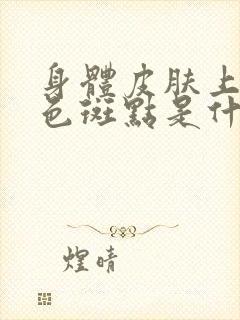 身體皮肤上
色斑點是什
煌晴